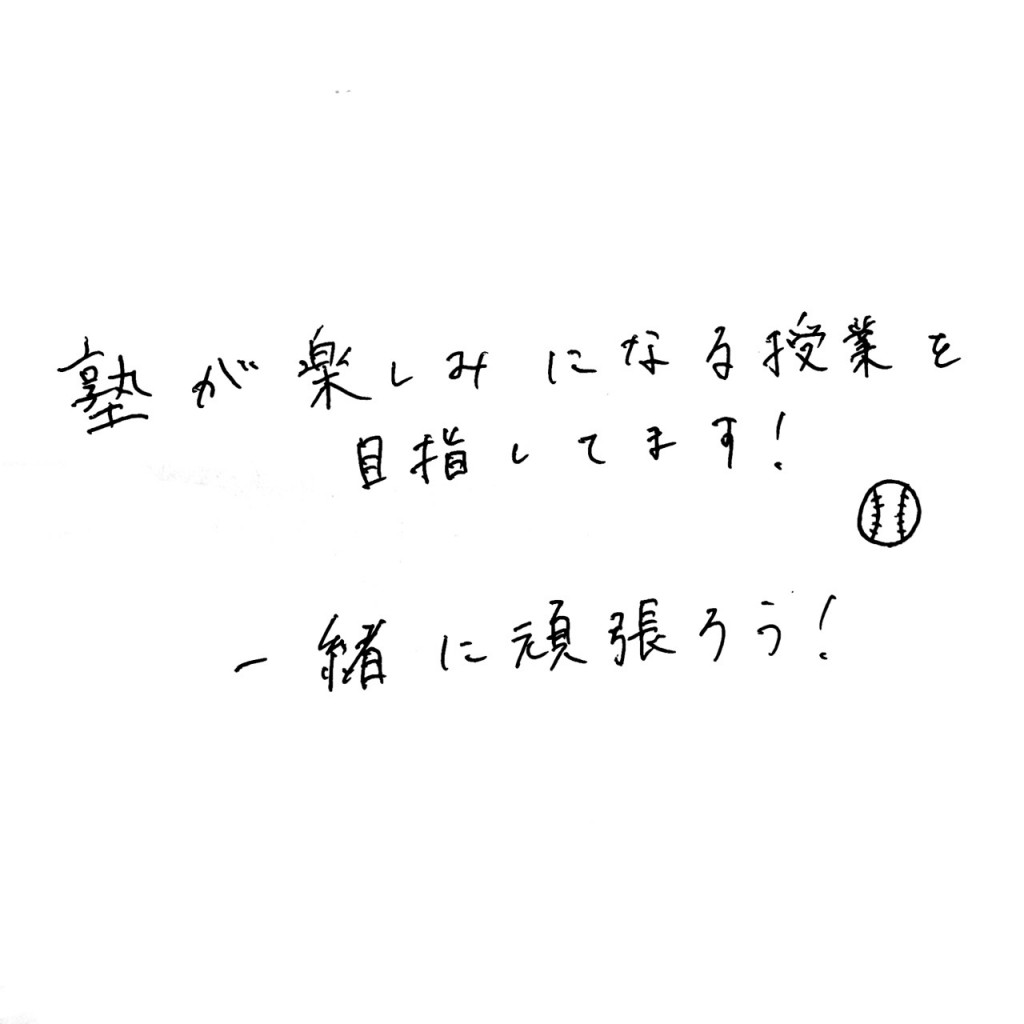 塾が楽しみになる授業を
目指してます！
一緒に頑張ろう！